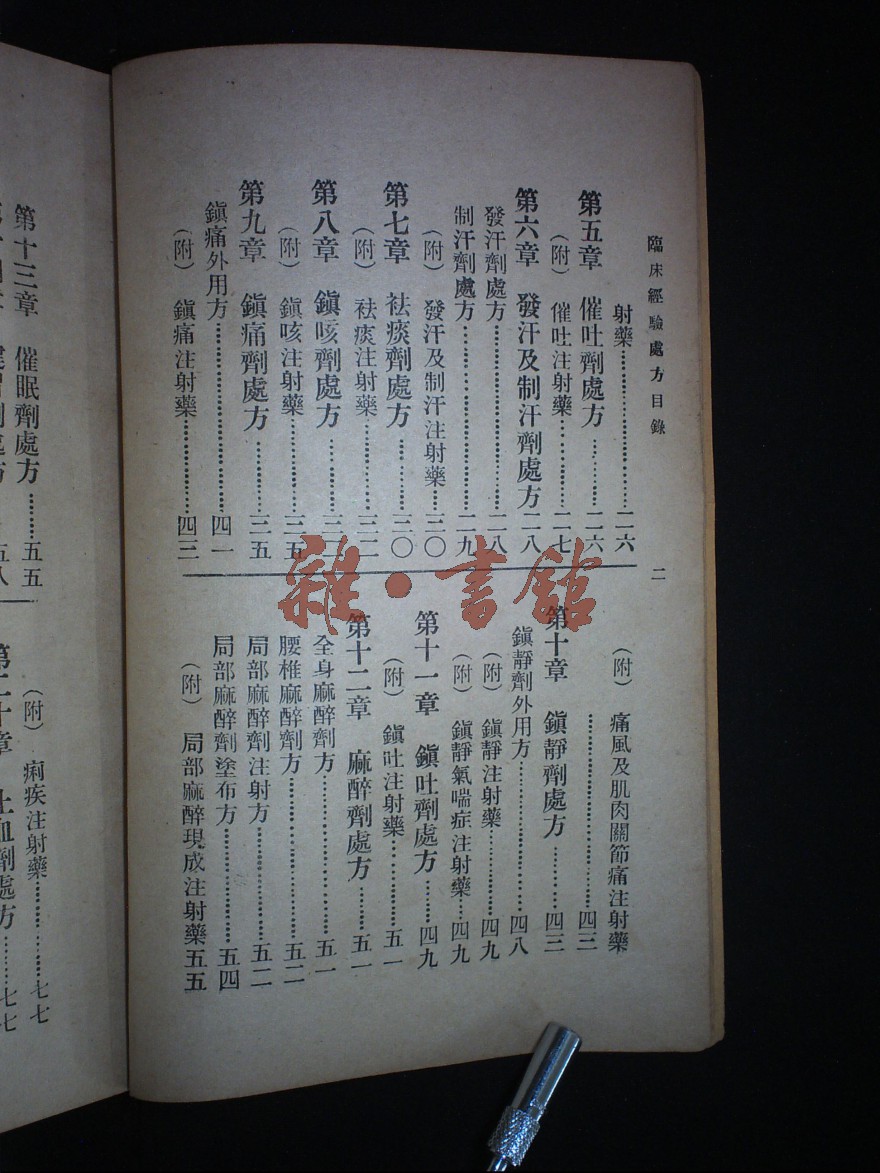 臨床經驗處方目錄
二
射藥……………二六
第五章 催吐劑處方……二六
(附) 催吐注射藥……二七
第六章 發汗及制汗劑處方二八
發汗劑處方……………二八
制汗劑處方……………二九
(附) 發汗及制汗注射藥…三〇
第七章 袪痰劑處方……三〇
(附) 袪痰注射藥……三二
第八章 鎭咳劑處方……三二
(附) 鎭咳注射藥……三五
第九章 鎭痛劑處方……三五
鎭痛外用方……………四一
(附) 鎭痛注射藥……四三
(附) 痛風及肌肉關節痛注射藥
……………四三
第十章 鎭靜劑處方……四三
鎭靜劑外用方…………四八
(附) 鎭靜注射藥……四九
(附) 鎭靜氣喘症注射藥…四九
第十一章 鎭吐劑處方……四九
(附) 鎭吐注射藥……五一
第十二章 麻醉劑處方……五一
全身麻醉劑方…………五一
腰椎麻醉劑方…………五二
局部麻醉劑注射方………五二
局部麻醉劑塗布方………五四
(附) 局部麻醉現成注射藥五五
雜·書館
第十三章 催眠劑處方……五五
劑處方……五八
(附) 痢疾注射藥……七七
第二十章 止血劑處方……七七